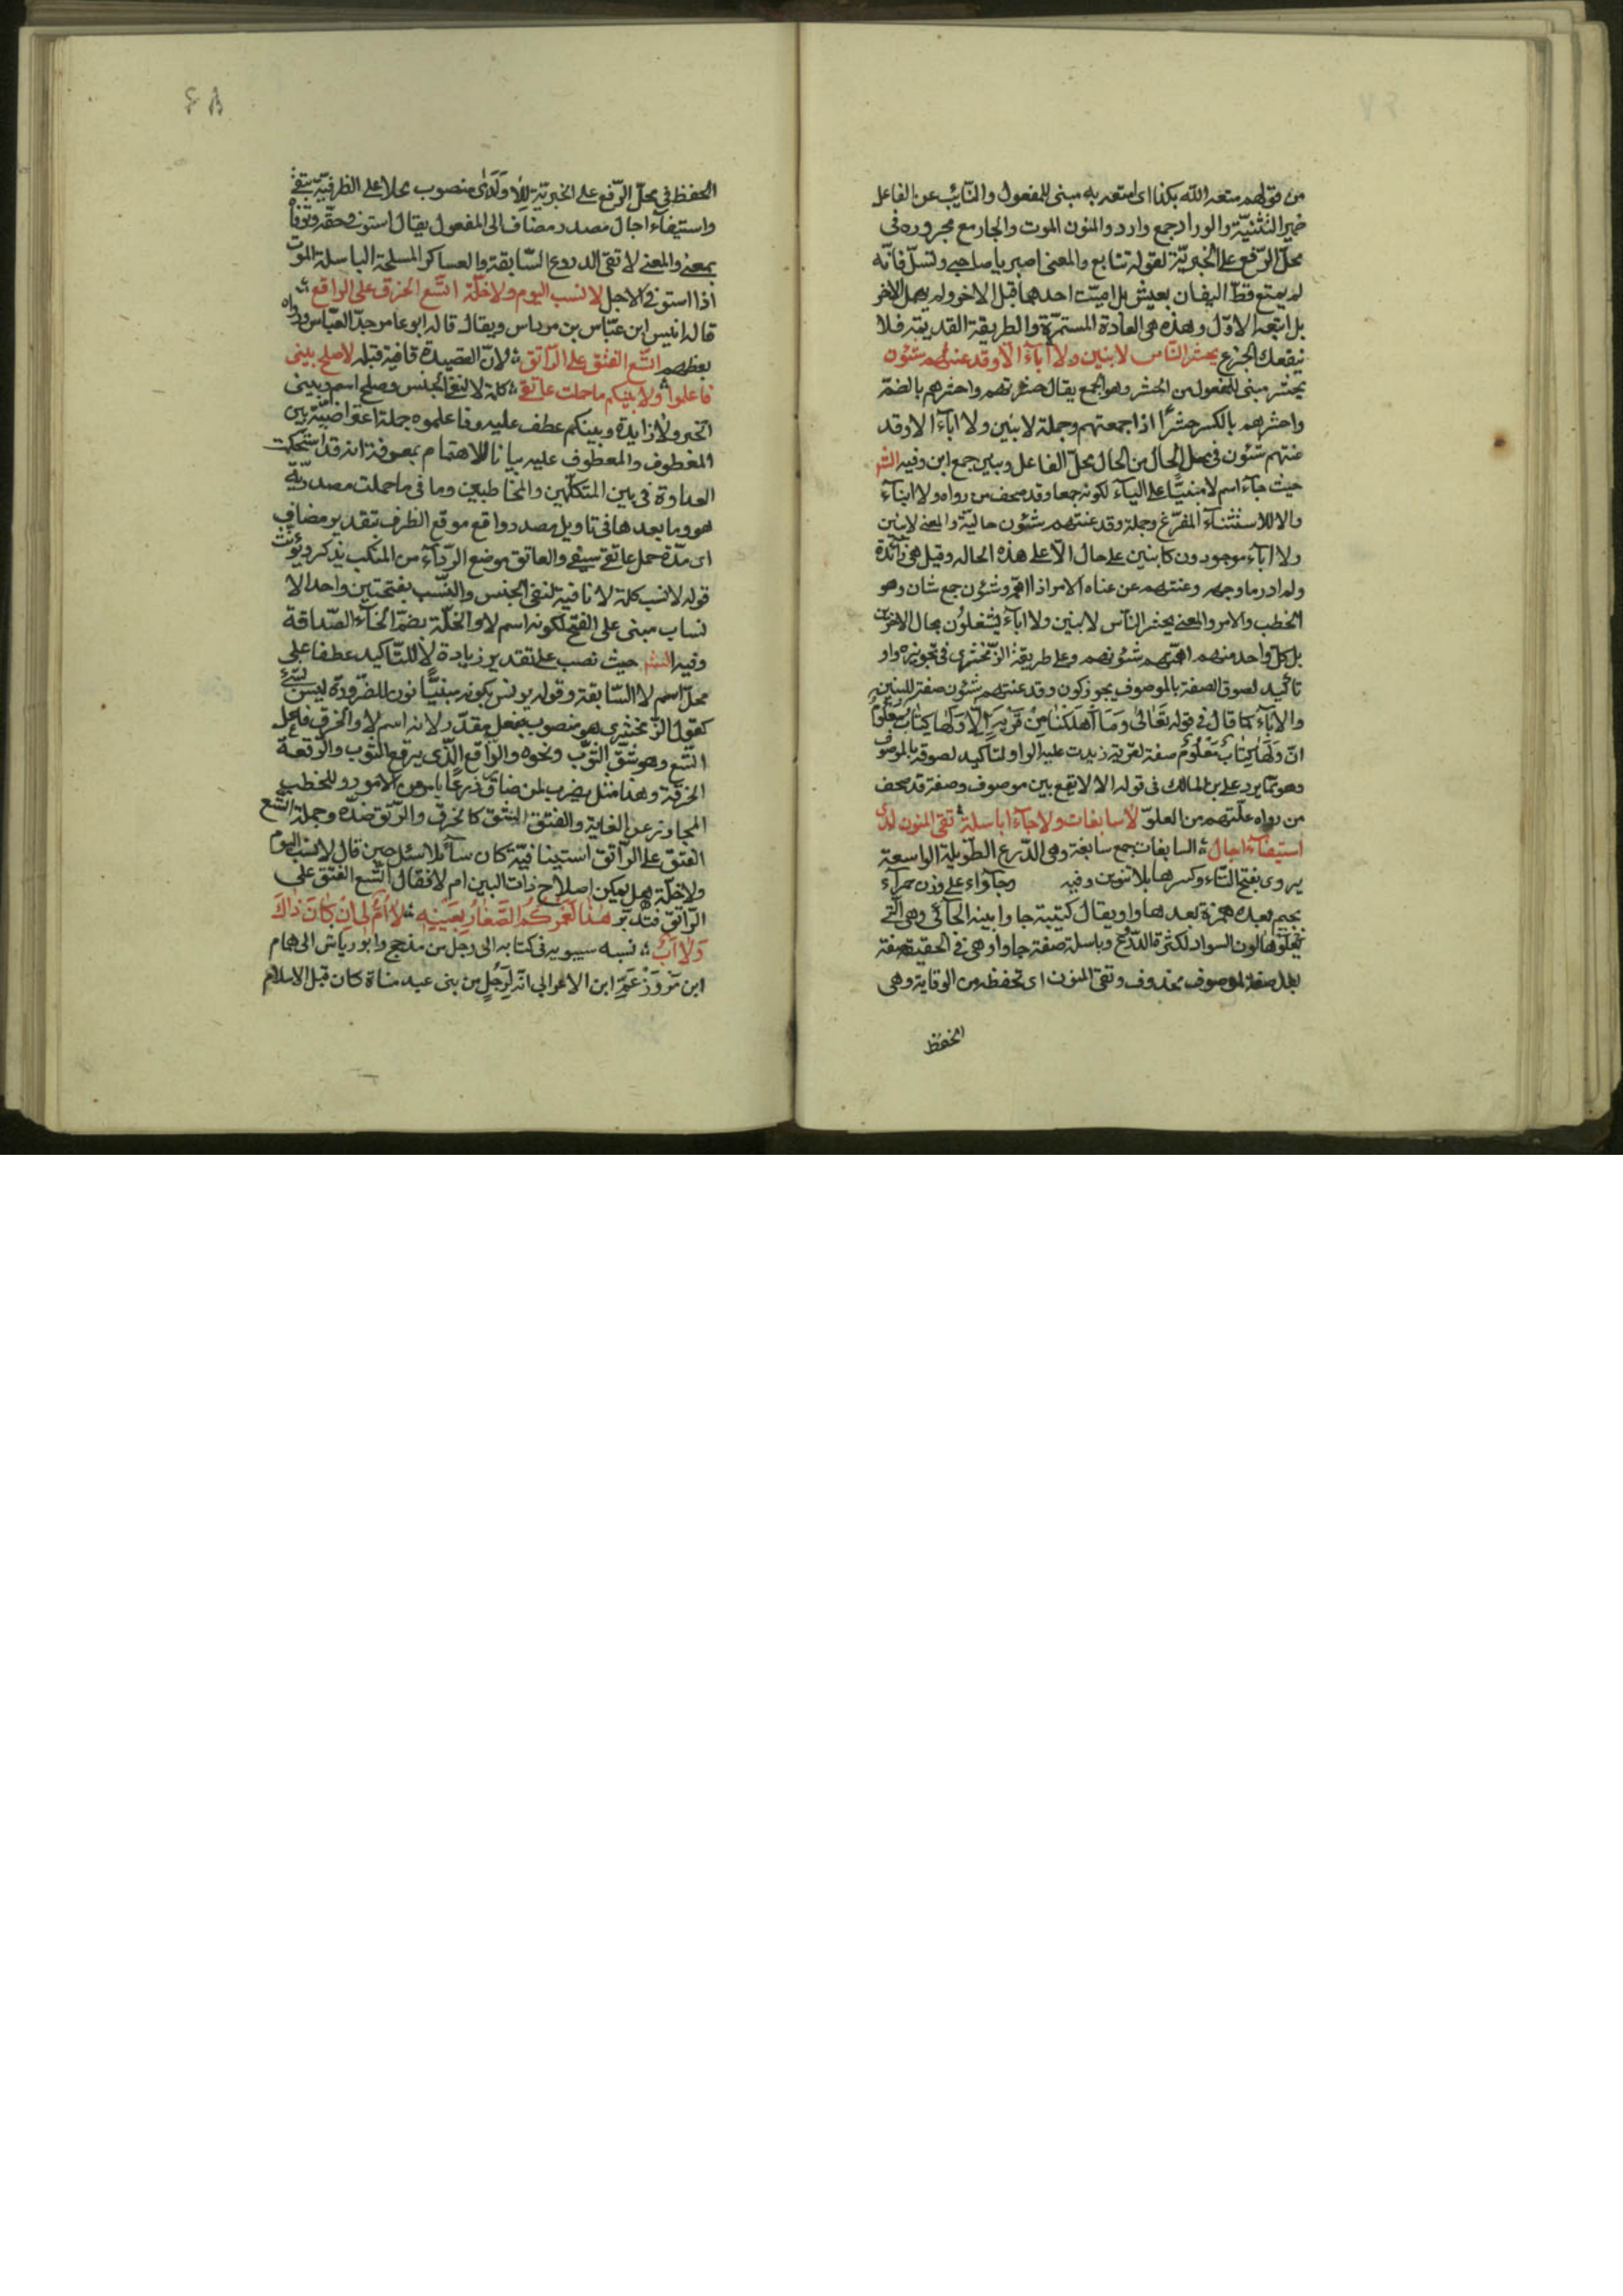 من قولهم متعه الله بكذا اى امتعه به مبنى للمفعول والنايب عن الفاعل
ضمير التثنية والوراد جمع وارد والمنون الموت والجار مع مجروره فى
محل الرفع على الخبرية لقوله تتابع والمعنى اصبر يا صاحبى وتسل فانه
لم يمتع قط اليفان بعيش بل اميت احدهما قبل الاخر ولم يهمل الاخر
بل اتبعه الاول وهذه هى العادة المستمرة والطريقة القديمة فلا
ينفعك الجزع يحشر الناس لا بنين ولا اباء الا وقد عنتهم شئون
يحشر مبنى للمفعول من الحشر وهو الجمع يقال حشرتهم واحشرهم بالضم
واحشرهم بالكسر حشرا اذا جمعتهم وجملة لا بنين ولا اباء الا وقد
عنتهم شئون فى محل الحال من الحال محل الفاعل وبنين جمع ابن وفيه الش
حيث جاء اسم لا مبنيا على الياء لكونه جمعا وقد صحف من رواه ولا ابناء
والا للاستثناء المفرغ وجملة وقد عنتهم شئون حالية والمعنى لا بنين
ولا اباء موجودون كاينين على حال الا على هذه الحاله وقيل هى زائدة
ولم ادر ما وجهه وعنتهم من عناه الامر اذا اهمه وشئون جمع شان وهو
الخطب والامر والمعنى يحشر الناس لا بنين ولا اباء يشتغلون بحال الاخرين
بل كل واحد منهم اهمتهم شئونهم وعلى طريقة الزمخشرى فى تجويزه واو
تاكيد لصوق الصفة بالموصوف يجوز كون وقد عنتهم شئون صفة للبنين
والاباء كما قال فى قوله تعالى وما اهلكنا من قرية الا ولها كتاب معلوم
ان ولها كتاب معلوم صفة لقرية زيدت عليه الواو لتاكيد لصوقه بالموصوف
وهو مما يرد على بن المالك فى قوله الا لا يقع بين موصوف وصفة وقد صحف
من رواه علتهم من العلو لا سابغات ولا جاواء باسلة تقى المنون لدى
استيفاء اجال السابغات جمع سابغة وهى الدرع الطويلة الواسعة
يروى بفتح التاء وكسرها بلا تنوين وفيه وجاواء على وزن حمراء
بجيم بعده همزة بعدها واو يقال كتيبة جاوا بينه الجآئى وهى التى
يعلوها لون السواد لكثرة الدروع وباسلة صفة جاوا وهى فى الحقيقة صفة
بعد صفة لموصوف محذوف وتقى المنون اى تحفظه من الوقاية وهى
الحفظ
٤٨
الحفظ فى محل الرفع على الخبرية للا ولدى منصوب محلا على الظرفية بتقى
واستيفاء اجال مصدر مضاف الى المفعول يقال استوفى حقه وتوفاه
بمعنى والمعنى لا تقى الدروع السابغة والعساكر المسلحة الباسلة الموت
اذا استوفى الاجل لا نسب اليوم ولا خلة اتسع الخرق على الراقع
قاله انيس ابن عباس بن مرداس ويقال قاله ابو عامر جد العباس ورواه
بعظهم اتسع الفتق على الراتق لان القصيدة قافية قبله لا صلح بينى
فاعلموا ولا بينكم ما حملت عاتقى كلمة لا لنفى الجنس وصلح اسمه وبينى
الخبر ولا زايدة وبينكم عطف عليه وفاعلموه جملة اعتراضية بين
المعطوف والمعطوف عليه بيانا للاهتمام بمعرفة انه قد استحكمت
العداوة فى بين المتكلمين والمخاطبين وما فى ما حملت مصدرية
هو وما بعدها فى تاويل مصدر واقع موقع الظرف بتقدير مضاف
اى مدة حمل عاتقى سيفى والعاتق موضع الرداء من المنكب يذكر ويؤنث
قوله لا نسب كلمة لا نافية لنفى الجنس والنسب بفتحتين واحد الا
نساب مبنى على الفتح لكونه اسم لا والخلة بضم الخاء الصداقة
وفيه الش حيث نصب على تقدير زيادة لا للتاكيد عطفا على
محل اسم لا السابقة وقوله يونس بكونه مبنيا نون للضرورة ليس بشئ
كقول الزمخشرى هو منصوب بفعل مقدر ولا نه اسم لا والخرق فاعل
اتسع وهو شق الثوب ونحوه والراقع الذى يرقع الثوب والرقعة
الخرقة وهذا مثل يضرب لمن ضاق ذرعا بامر من الامور وللخطب
المجاوز عن الغاية والفتق الشق كالخرق والرتق ضده وجملة اتسع
الفتق على الراتق استينافية كان سآئلا سئل حين قال لا نسب اليوم
ولا خلة هل يمكن اصلاح ذات البين ام لا فقال اتسع الفتق على
الراتق فتدبر هذا لعمركم الصغار بعينه لا ام لى ان كان ذاك
ولا اب نسبه سيبويه فى كتابه الى رجل من مذحج وابو رياش الى همام
ابن مرة وزعم ابن الاعرابي انه لرجل من بنى عبد مناة كان قبل الاسلام